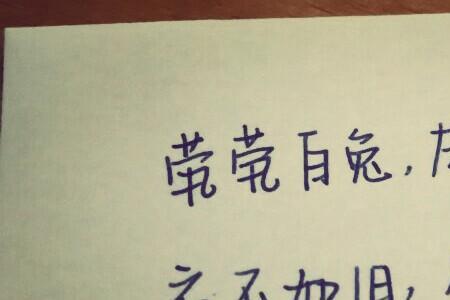 茕茕白兔，
衣不如旧，